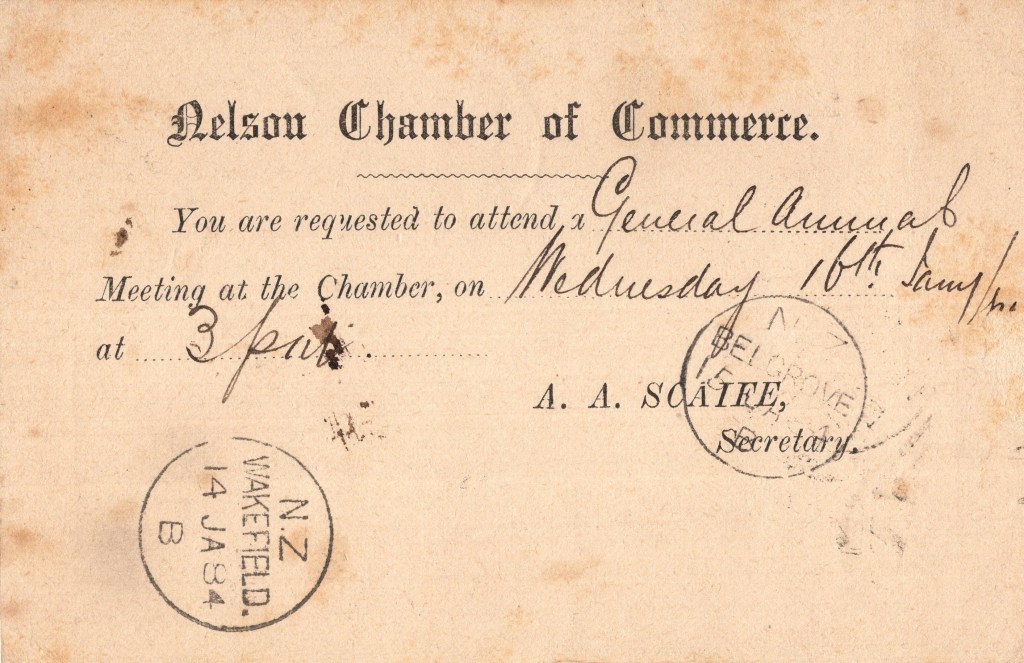 Nelson Chamber of Commerce.
You are requested to attend a General Annual
Meeting at the Chamber, on Wednesday 16th Jany/
at 3 pm.
A. A. SCAIFE,
Secretary.
N.Z
BELGROVE
15 JA
B
N.Z
WAKEFIELD.
14 JA 84
B